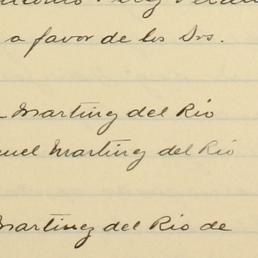 a favor de los Drs.
Martinez del Rio
uel Martinez del Rio
Martinez del Rio de